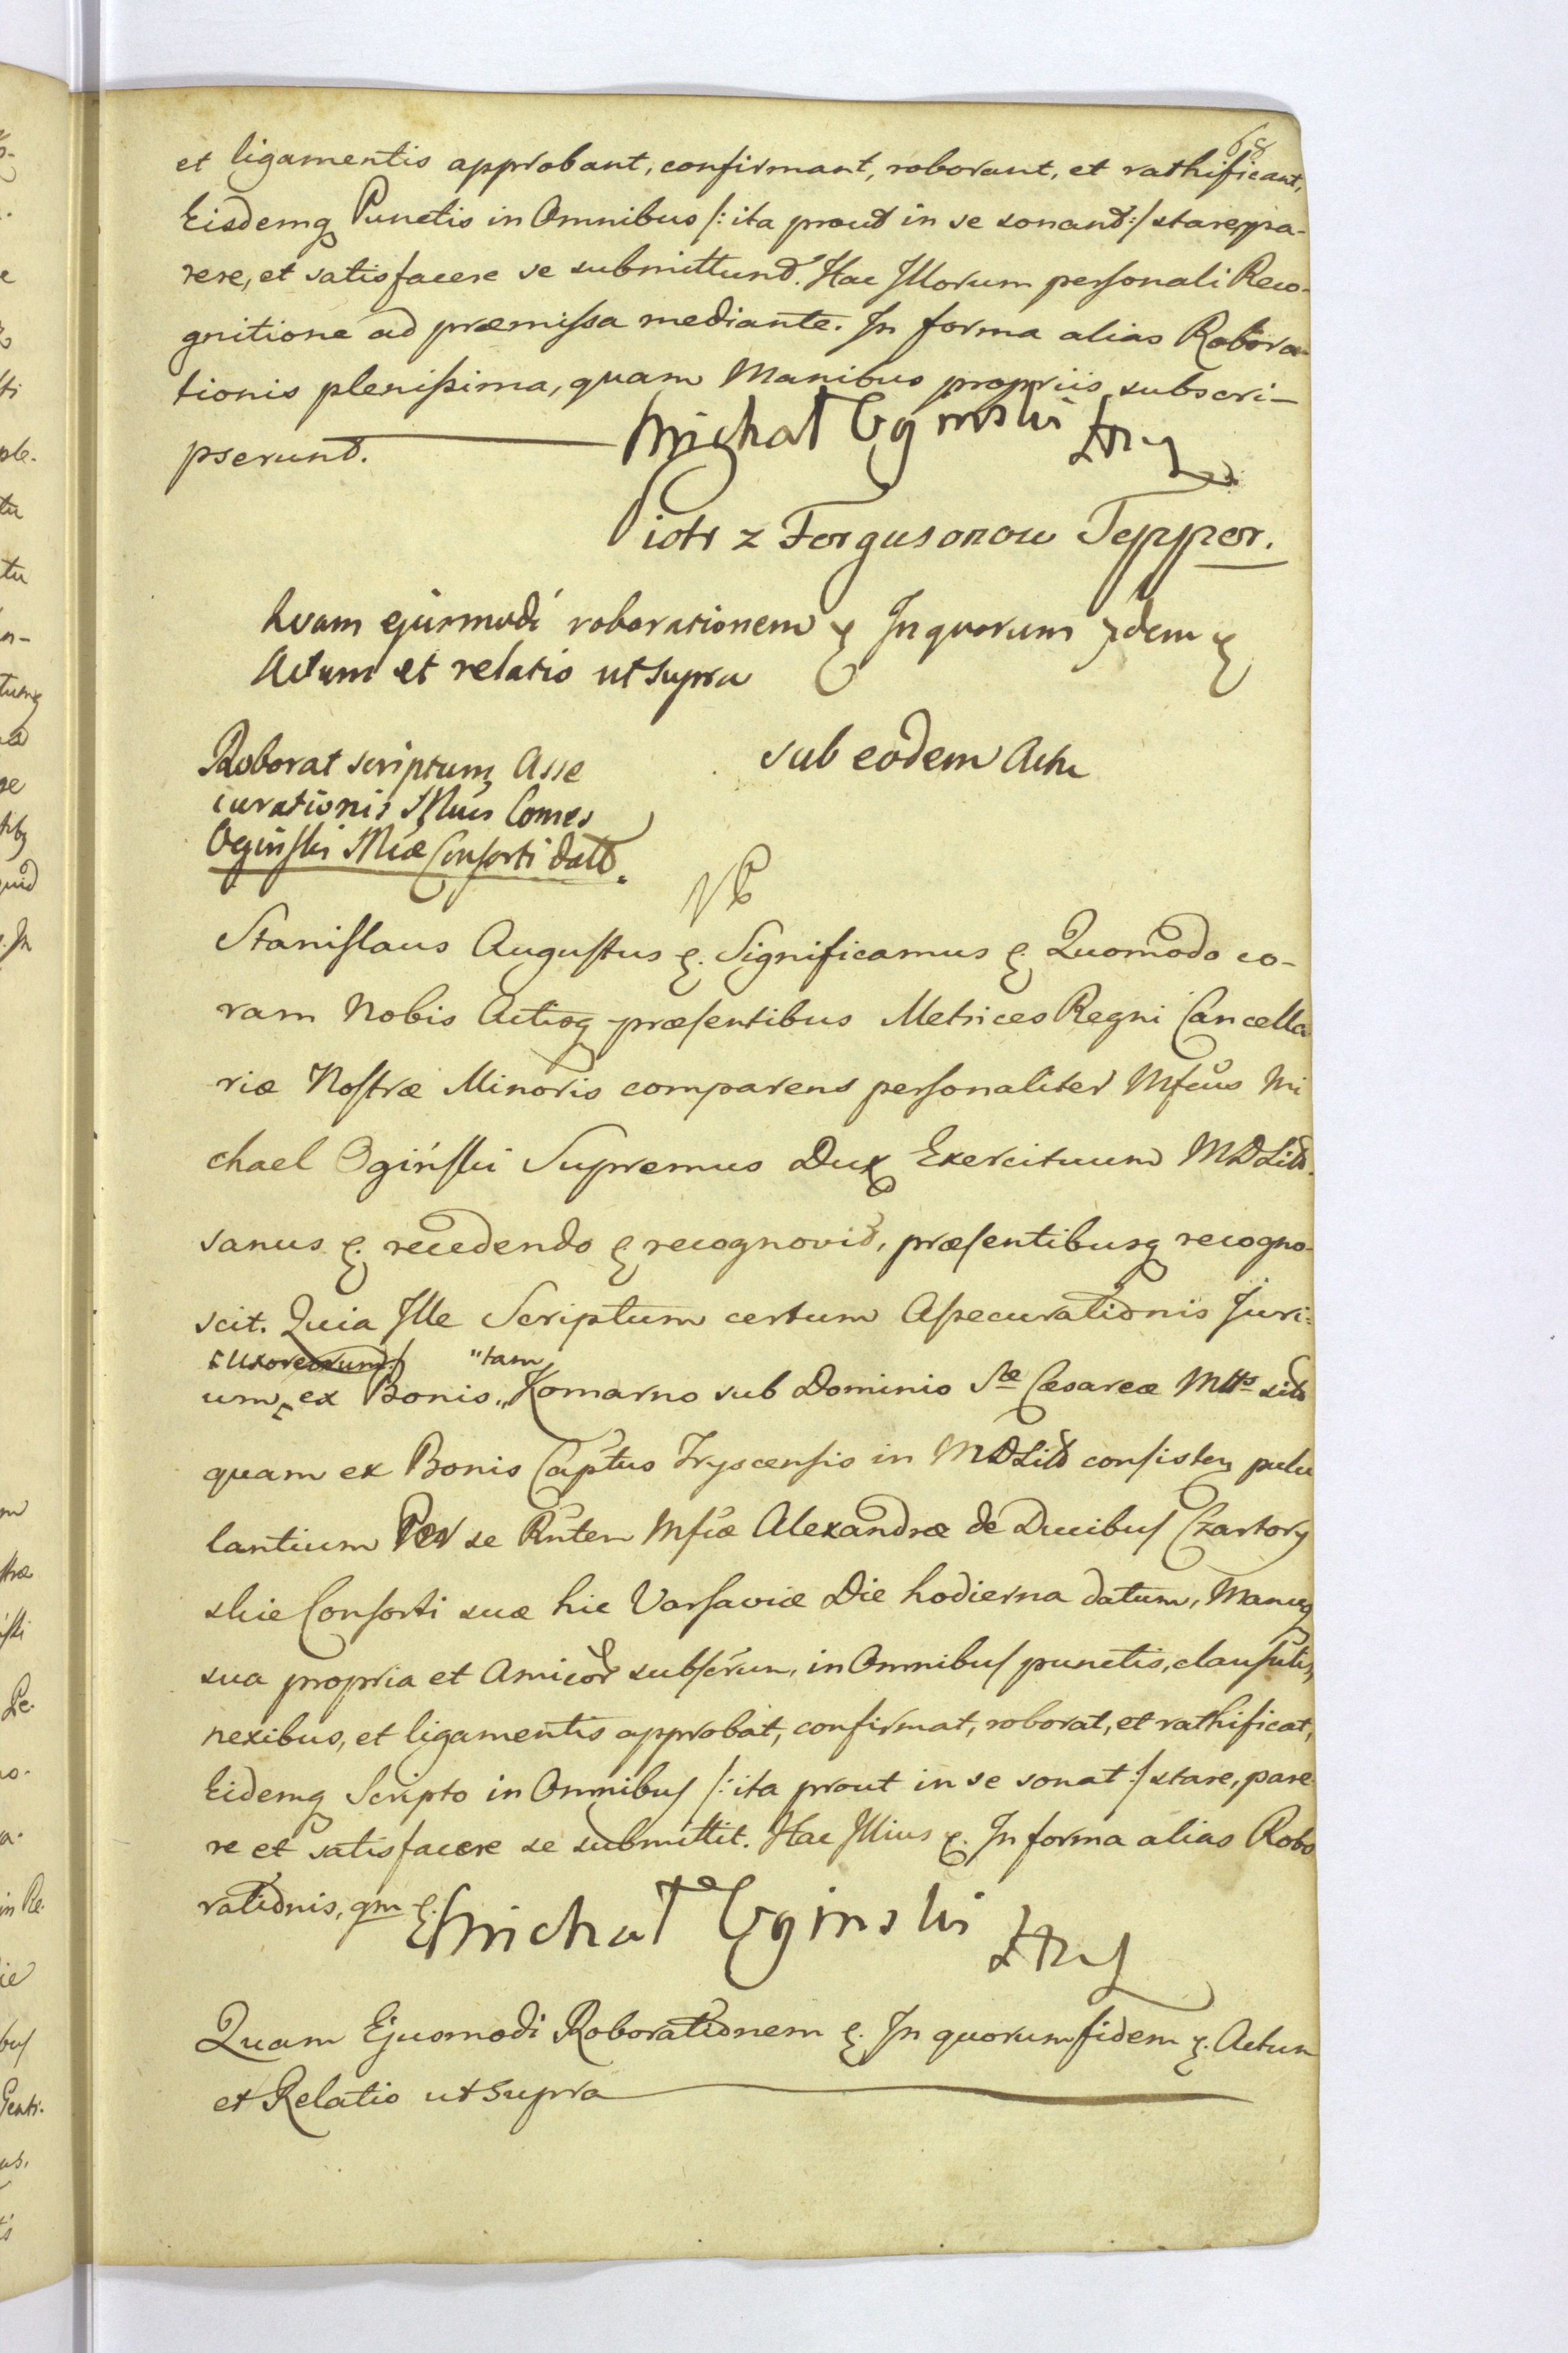 68
et ligamentis approbant, confirmant, roborant, et rathificant,
Eisdemq Punctis in Omnibus /: ita prout in se sonant :/ stare, pa-
rere, et satisfacere se submittunt. Hac Illorum personali Reco-
gnitione ad præmissa mediante. In forma alias Robora-
tionis plenissima, quam Manibus propriis subscri-
pserunt. Michał Ogiński
Piotr z Fergusonow Tepper.
Quam ejusmodi roborationem & In quorum fidem &
Actum et relatio ut supra
Roborat scriptum Asse
curationis Mcus Comes
Ogiński Mcæ Consorti datt.
sub eodem Actu
Nb
Stanislaus Augustus &. Significamus &. Quomodo co-
ram Nobis Actisq præsentibus Metrices Regni Cancella
riæ Nostræ Minoris comparens personaliter Mfcus Mi
chael Ogiński Supremus Dux Exercituum MDLitt.
sanus &. recedendo & recognovit, præsentibusq recogno-
scit. Quia Ille Scriptum certum Assecurationis Juri-
"tam
um ex Bonis "Komarno sub Dominio Sæ Cæsareæ Mttis sit
quam ex Bonis Captus Tryscensis in MDLitt consisten pulu
lantium Per se Rnten Mfcæ Alexandræ de Ducibus Czartory
skie Consorti suæ hic Varsaviæ Die hodierna datum, Manuq
sua propria et Amicor subscrum, in Omnibus punctis, clausulis,
nexibus, et ligamentis approbat, confirmat, roborat, et rathificat,
Eidemq Scripto in Omnibus /: ita prout in se sonat :/ stare, pare
re et satisfacere se submittit. Hac Illius &. In forma alias Robo
rationis, qm &. Michał Ogiński
Quam Ejusmodi Roborationem &. In quorum fidem &. Actum
et Relatio ut supra